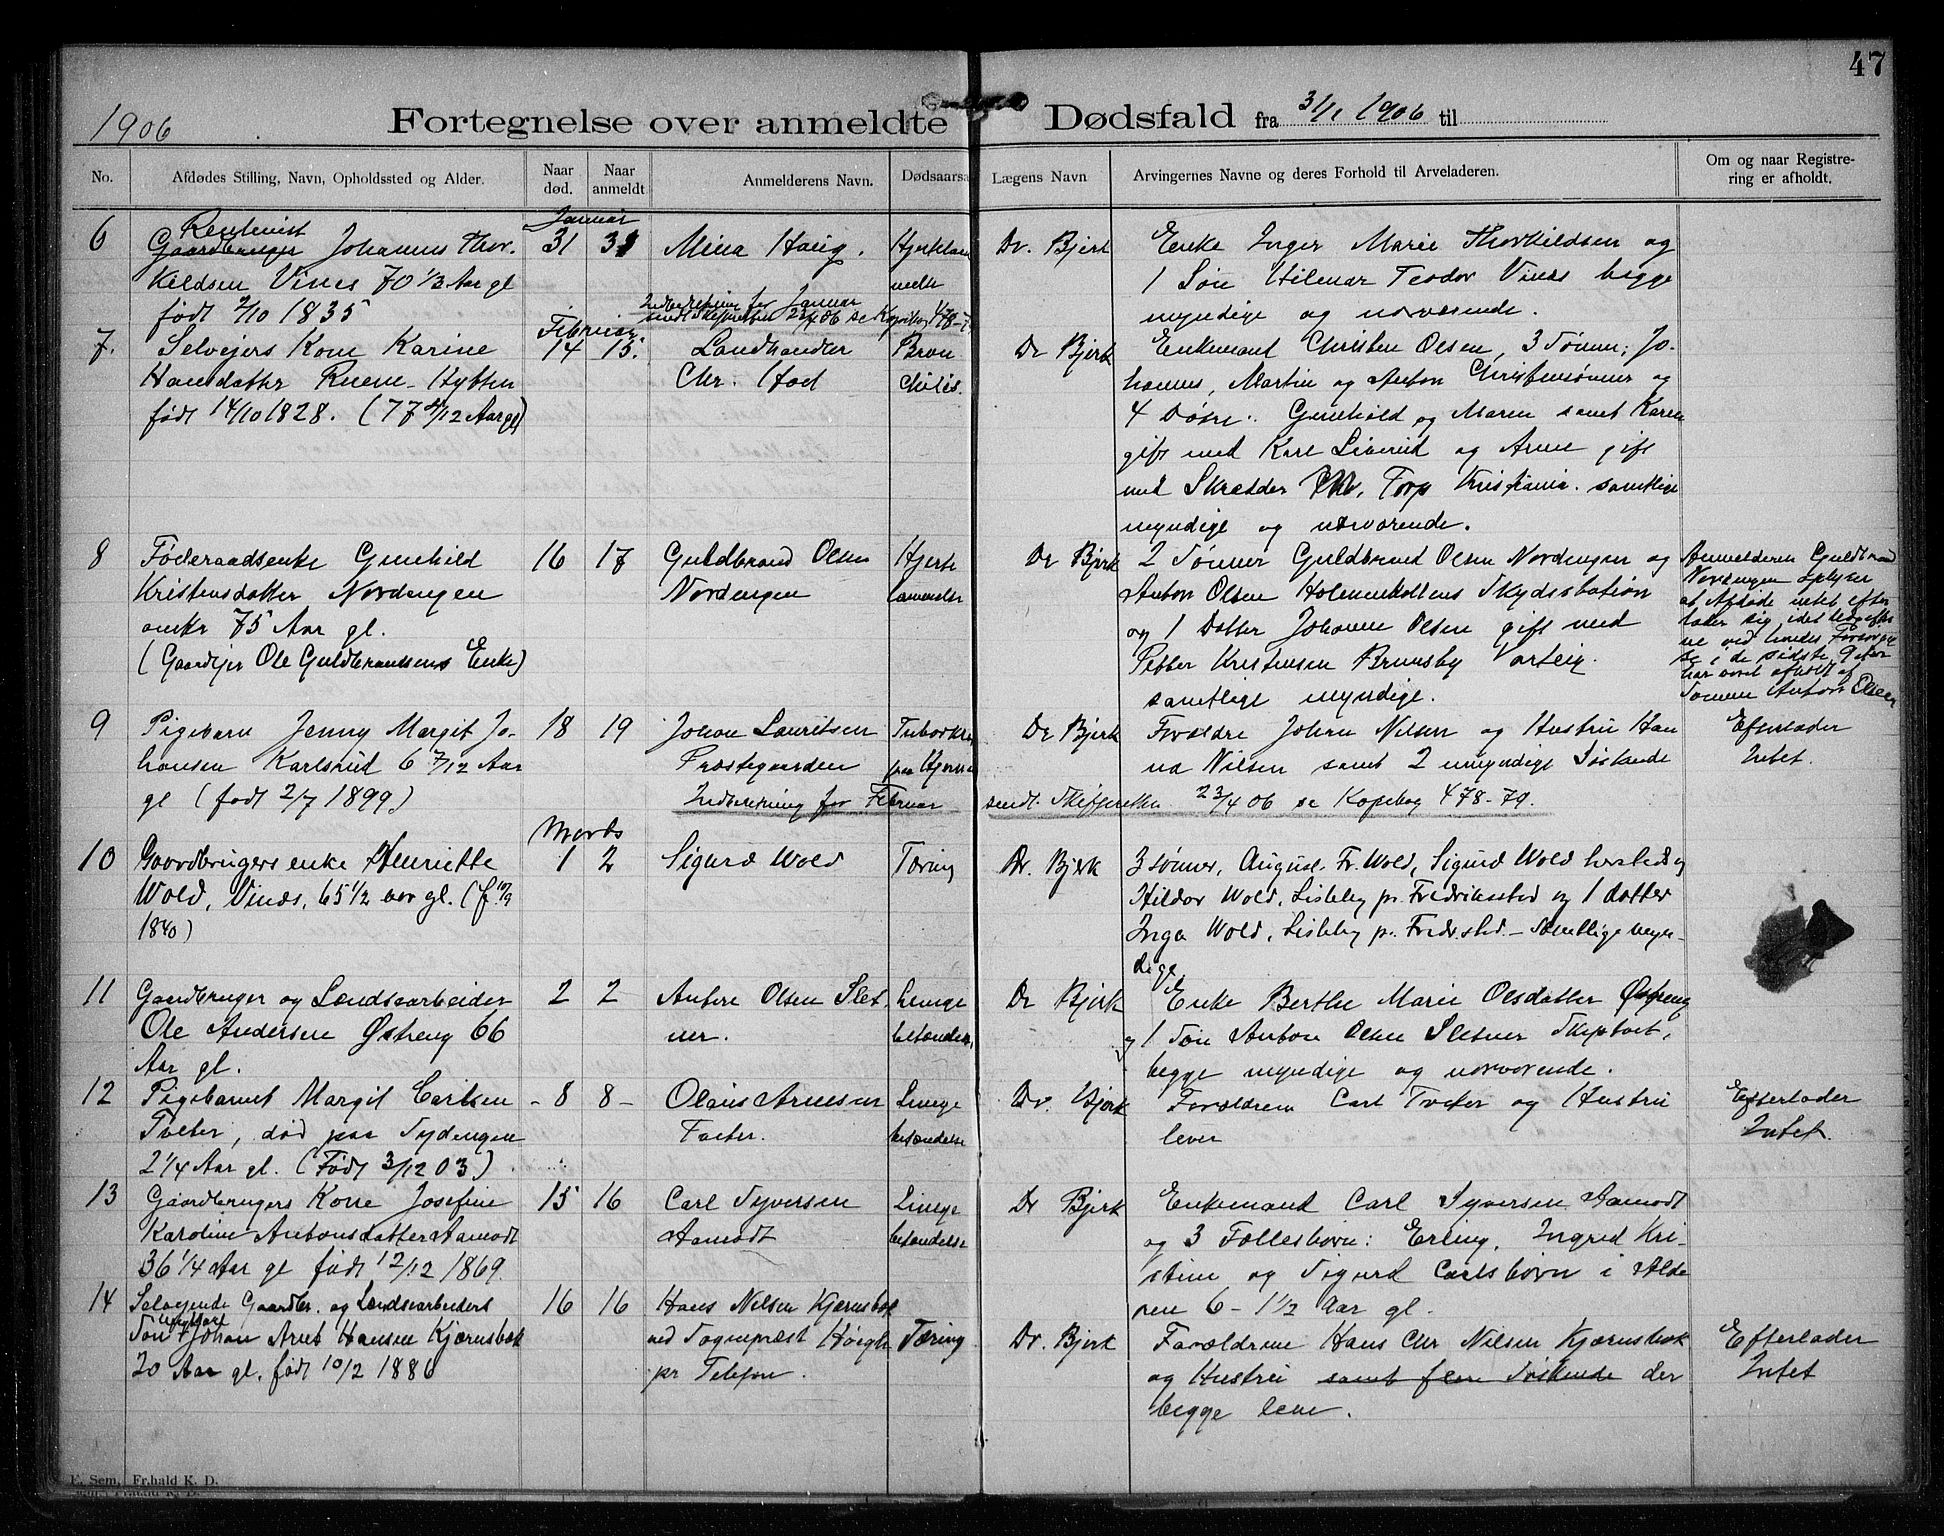 47
1906
Fortegnelse over anmeldte Dødsfald fra 31/1 1906 til
No.
Afdødes Stilling, Navn, Opholdssted og Alder.
Naar død.
Naar anmeldt
Anmelderens Navn.
Dødsaarsa
Lægens Navn
Arvingernes Navne og deres Forhold til Arveladeren.
Om og naar Registre-
ring er afholdt.
Januar
6
Rentenist
Gaardbruger Johannes Thor-
kildsen Vines 70 1/3 Aar gl
født 2/10 1835
31
31
Mina Haug.
Hjerteläm
melse
Dr. Bjerk
Enke Inger Marie Thorkildsen og
1 Søn Hilmar Teodor Vines begge
myndige og nærværende.
Indberetning for Januar
sendt Skifteretten 23/4 06 se Kopibog 478-79
Februar
7.
Selvejers Kone Karine
Hansdatter Ruene-Hytten
født 14/10 1828. (77 4/12 Aar gl)
14
15.
Landhandler
Chr. Hod
Bron
chitis.
Dr Bjerk
Enkemand Christen Olsen, 3 Sønner; Jo-
hannes, Martin og Anton Christensønner og
4 Døtre: Gunhild og Maren samt Karen
gift med Karl Liverud og Anne gift
med Skrædder Chr. Torp Kristiania. samtlige
myndige og nærværende.
8
Føderaadsenke Gunhild
Kristensdatter Nordengen
omkr 75 Aar gl.
(Gaardejer Ole Guldbrandsens Enke)
16
17
Guldbrand Olsen
Nordengen
Hjerte
lammelse
Dr Bjerk
2 Sønner Guldbrand Olsen Nordengen og
Anton Olsen Holmenkollens Skydsstation
og 1 Datter Johanne Olsen gift med
Petter Kristensen Brunsby Varteig.
samtlige myndige.
Anmelderen Guldbrand
Nordengen oplyser
at Afdøde intet efter
lader sig, idet
ne ved hendes Forsørgel
se i de sidste 9 Aar
har været afholdt af
Sønnen Anton Olsen
9
Pigebarn Jenny Margit Jo-
hansen Karlsrud 6 7/12 Aar
gl (født 2/7 1899.)
18
19
Johan Lauritsen
Præstegaarden
Tuberkler
paa Hjernen
Dr Bjerk
Forældre Johan Nilsen og Hustru Han
na Nilsen samt 2 umyndige Søskende
Efterlader
Intet.
Indberetning for Februar sendt Skifteretten 23/4 06 se Kopibog 478-79.
Marts
10
Gaardbrugers enke Henriette
Wold, Vinds, 65 1/2 aar gl. (f. 17/9
1840)
1
2
Sigurd Wold
Tæring
Dr. Bjerk
3 sønner, August Fr. Wold, Sigurd Wold hersteds og
Hildor Wold, Lisleby pr. Fredriksstad og 1 datter
Inga Wold, Lisleby pr. Fredr.stad. – Samtlige myn-
dige
11
Gaardbruger og Landsaarbeider
Ole Andersen Østreng 66
Aar gl.
2
2
Anton Olsen Slet-
ner.
Lunge
betændelse,
Dr Bjerk
Enke Berthe Marie Olsdatter Østreng
og 1 Søn Anton Olsen Sletner Skiptvet,
begge myndige og nærværende.
12
Pigebarnet Margit Carlsen
Tveter, død paa Tydengen
2 1/4 Aar gl. (Født 3/12 03)
– 8
8 –
Olaus Arnesen
Tveter.
Lunge
betændelse
Dr. Bjerk
Forældrene Carl Tveter og Hustru
lever
Efterlader
Intet.
13
Gaardbrugers Kone Josefine
Karoline Antonsdatter Aamodt
36 1/4 Aar gl født 12/12 1869.
15
16
Carl Syversen
Aamodt
Lunge
betændelse
Dr Bjerk
Enkemand Carl Syversen Aamodt
og 3 Fællesbørn: Erling, Ingrid Kri-
stine og Sigurd Carlsbørn i Alde
ren 6 – 1 1/2 Aar gl.
14
Selvejende Gaardbr. og Landsaarbeiders
Søn ugift Johan Arnt Hansen Kjærnsbæk
20 Aar gl. født 10/2 1886
16
16
Hans Nilsen Kjærnsbæk
ved Sognepræst Høegh
pr Telefon.
Tæring
Dr. Bjerk
Forældrene Hans Chr Nilsen Kjærnsbæk
og Hustru samt flere Søskende der
begge lever.
Efterlader
Intet
E. Sem, Fr.hald K. D.